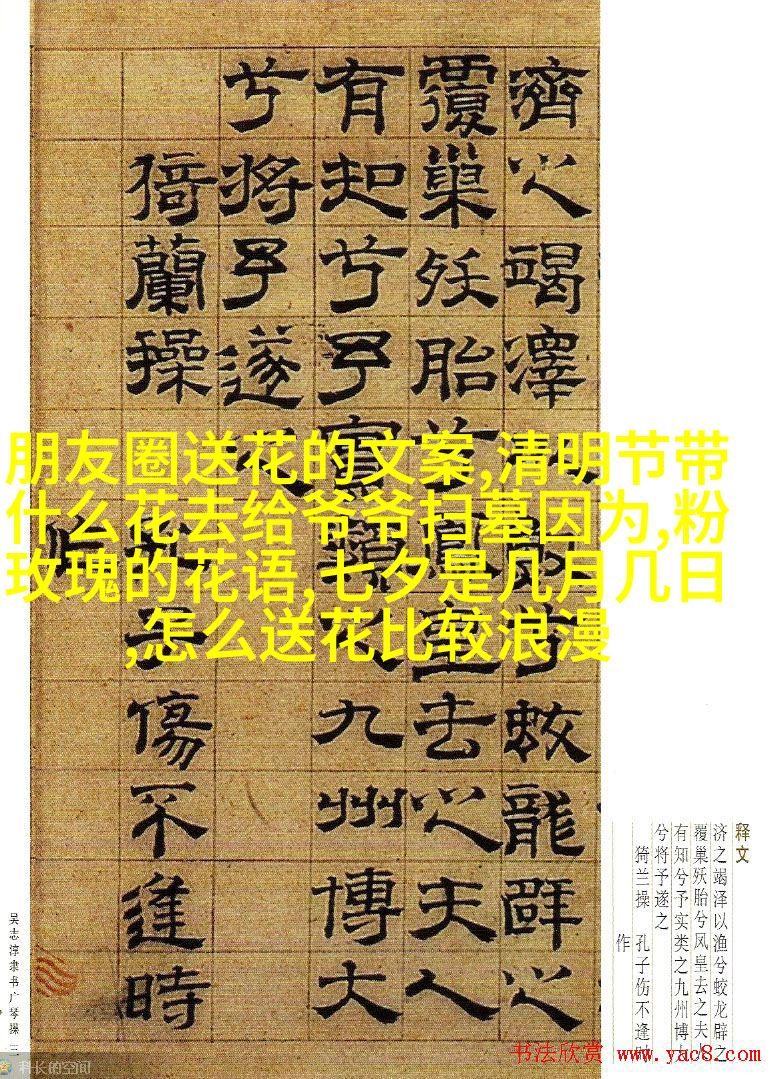 朋友圈送花的文案,清明节带
什么花去给爷爷扫墓因为,粉
玫瑰的花语,七夕是几月几日
,怎么送花比较浪漫
濟之竭澤兮蛟龍辟之
覆巢殀胎兮鳳皇去之夫人
有知兮予實類之九州博大
兮將予遂之
猗蘭操 孔子傷不逢時
作
释文
济之竭泽以渔兮蛟龙辟之
覆巢殀胎兮凤皇去之夫人
有知兮予实类之九州博
兮将予遂之
猗兰操 孔子伤不逢时
作
吴志淳隶书广琴操 三
科长的空间
书法欣赏 www.yac8.com